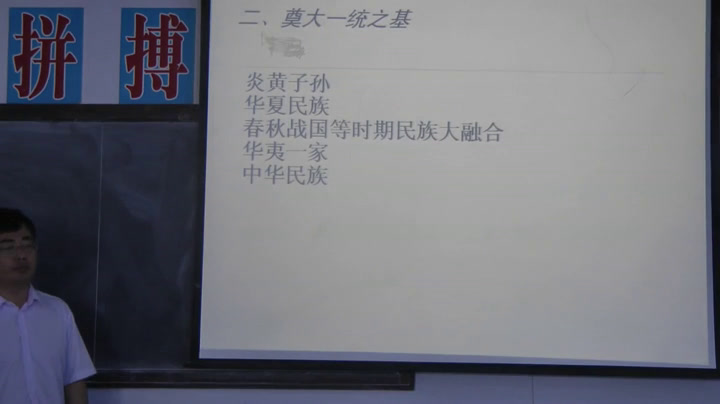 拼搏
二、奠大一统之基
炎黄子孙
华夏民族
春秋战国等时期民族大融合
华夷一家
中华民族